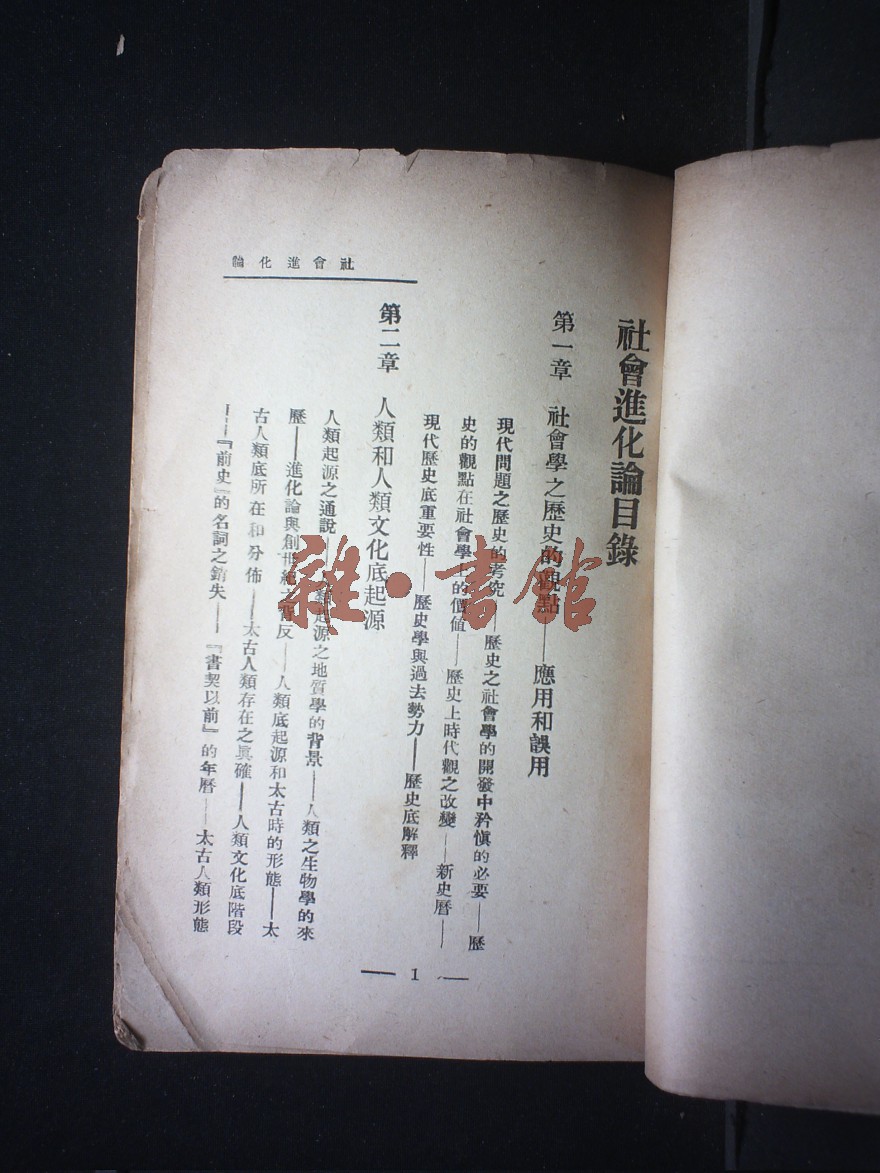 社會進化論目錄
第一章 社會學之歷史的觀點——應用和誤用
現代問題之歷史的考究——歷史之社會學的開發中矜慎的必要——歷
史的觀點在社會學上的價值——歷史上時代觀之改變——新史曆——
現代歷史底重要性——歷史學與過去勢力——歷史底解釋
第二章 人類和人類文化底起源
人類起源之通說——人類起源之地質學的背景——人類之生物學的來
歷——進化論與創世紀之背反——人類底起源和太古時的形態——太
古人類底所在和分佈——太古人類存在之眞確——人類文化底階段
——『前史』的名詞之銷失——『書契以前』的年曆——太古人類形態
社會進化論
— 1 —
雜·書館